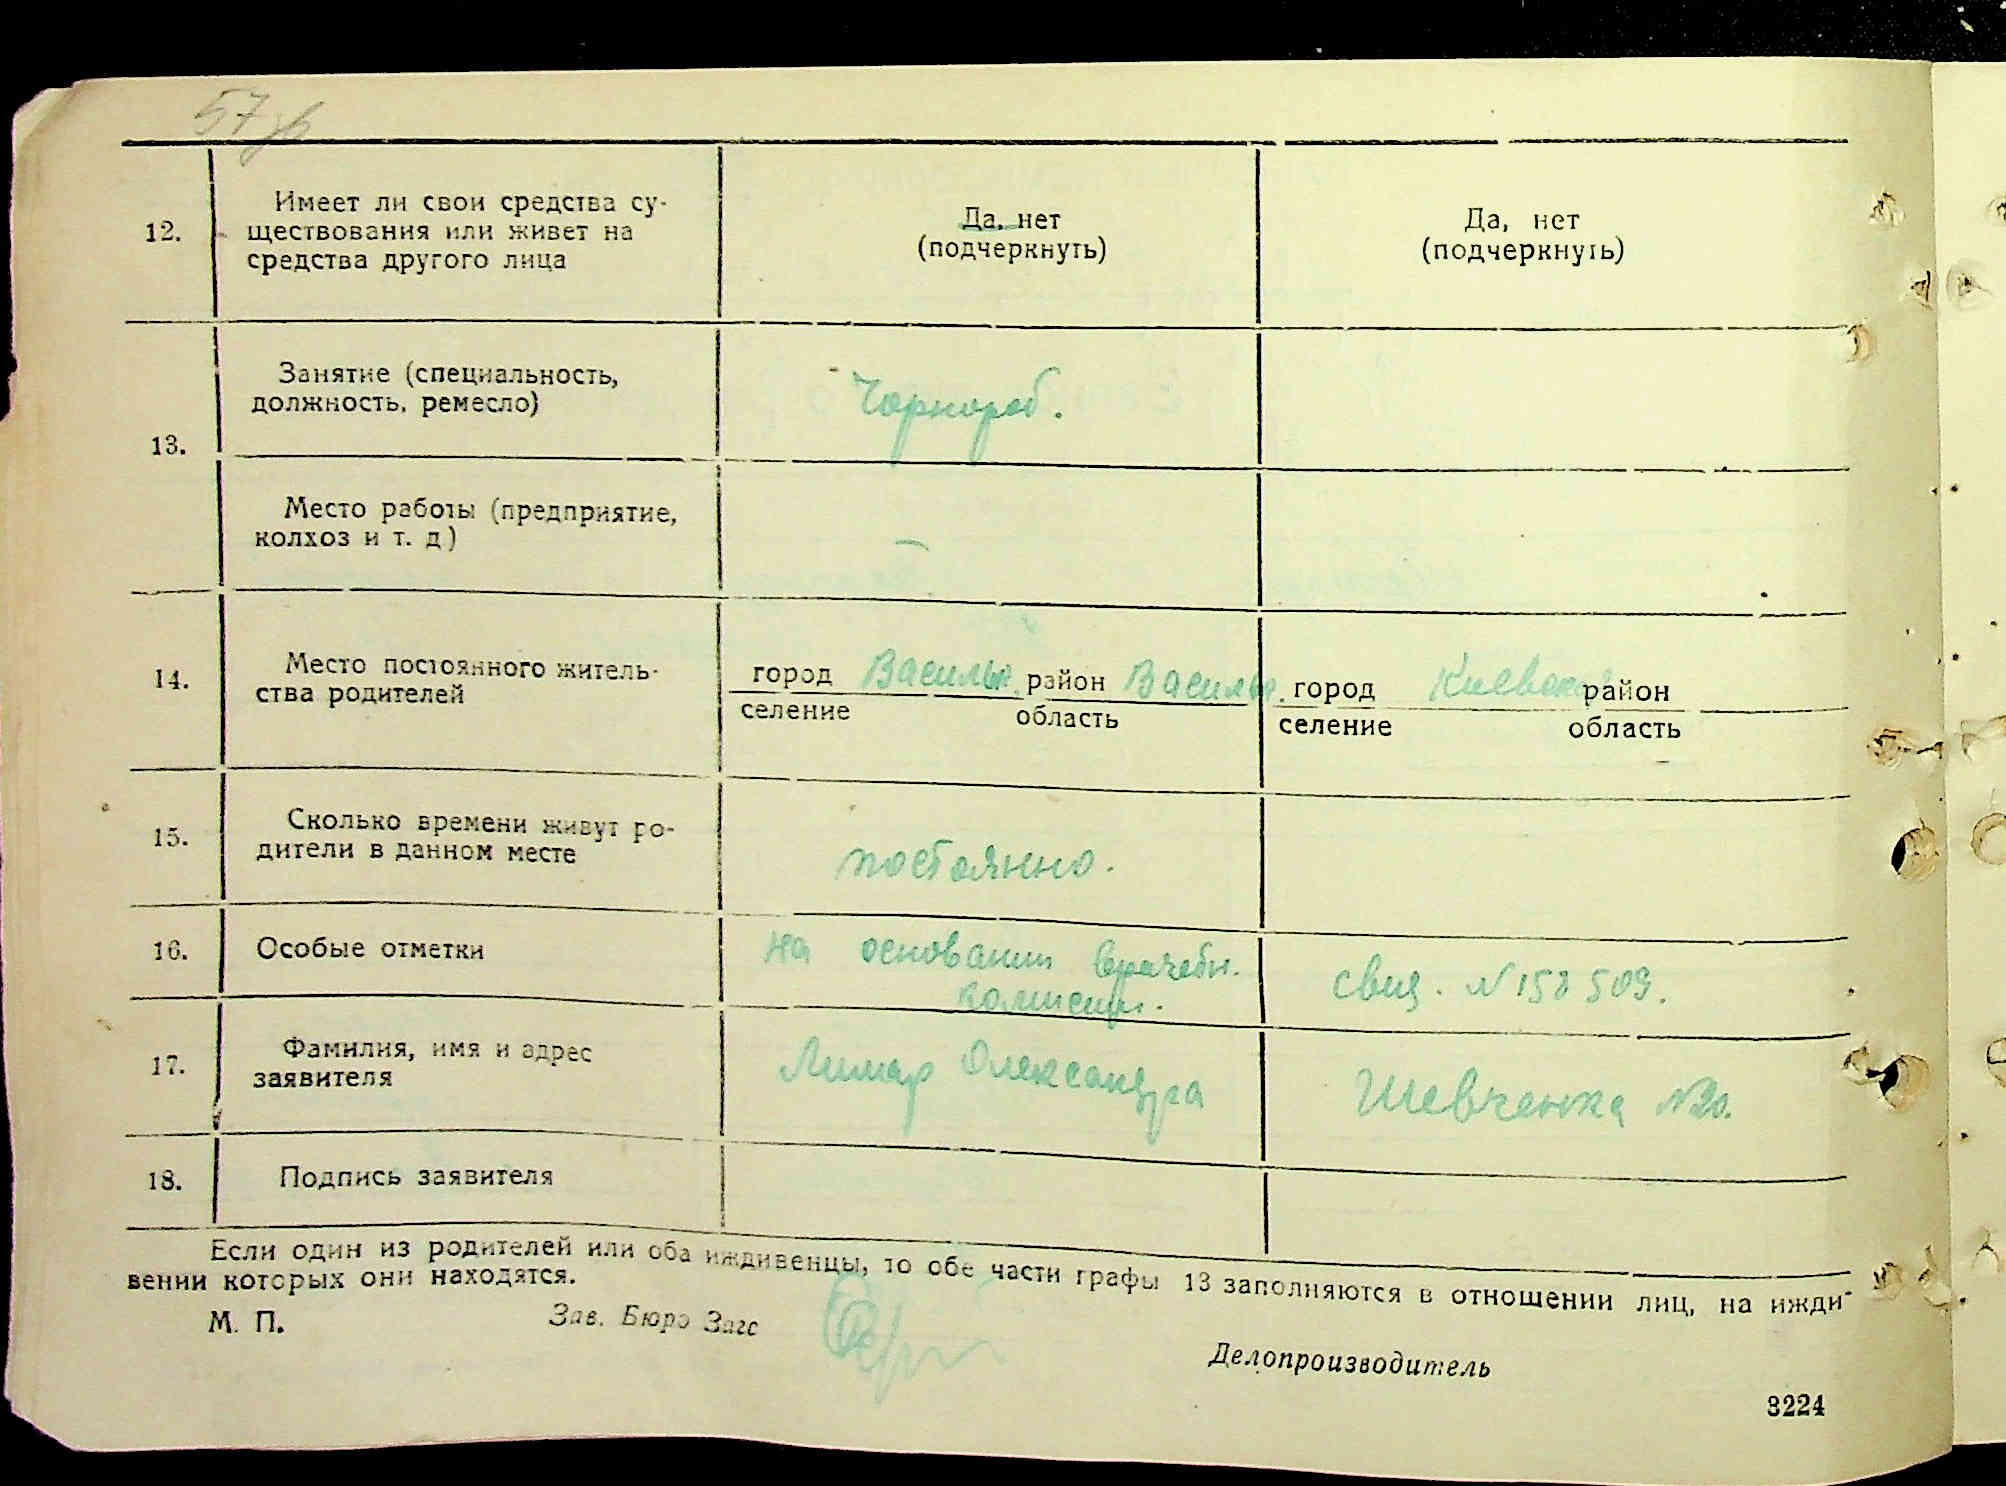 57
12.
Имеет ли свои средства су-
ществования или живет на
средства другого лица
Да, нет
(подчеркнуть)
Да, нет
(подчеркнуть)
13.
Занятие (специальность,
должность, ремесло)
Чорнороб.
Место работы (предприятие,
колхоз и т. д)
14.
Место постоянного житель-
ства родителей
город Васильк. район Васильк.
селение область
город Киевская район
селение область
15.
Сколько времени живут ро-
дители в данном месте
постоянно.
16.
Особые отметки
на основании врачебн.
комисии.
свид. № 158509.
17.
Фамилия, имя и адрес
заявителя
Лимар Олександра
Шевченка №20.
18.
Подпись заявителя
Если один из родителей или оба иждивенцы, то обе части графы 13 заполняются в отношении лиц, на ижди-
вении которых они находятся.
М. П.
Зав. Бюро Загс
Делопроизводитель
3224